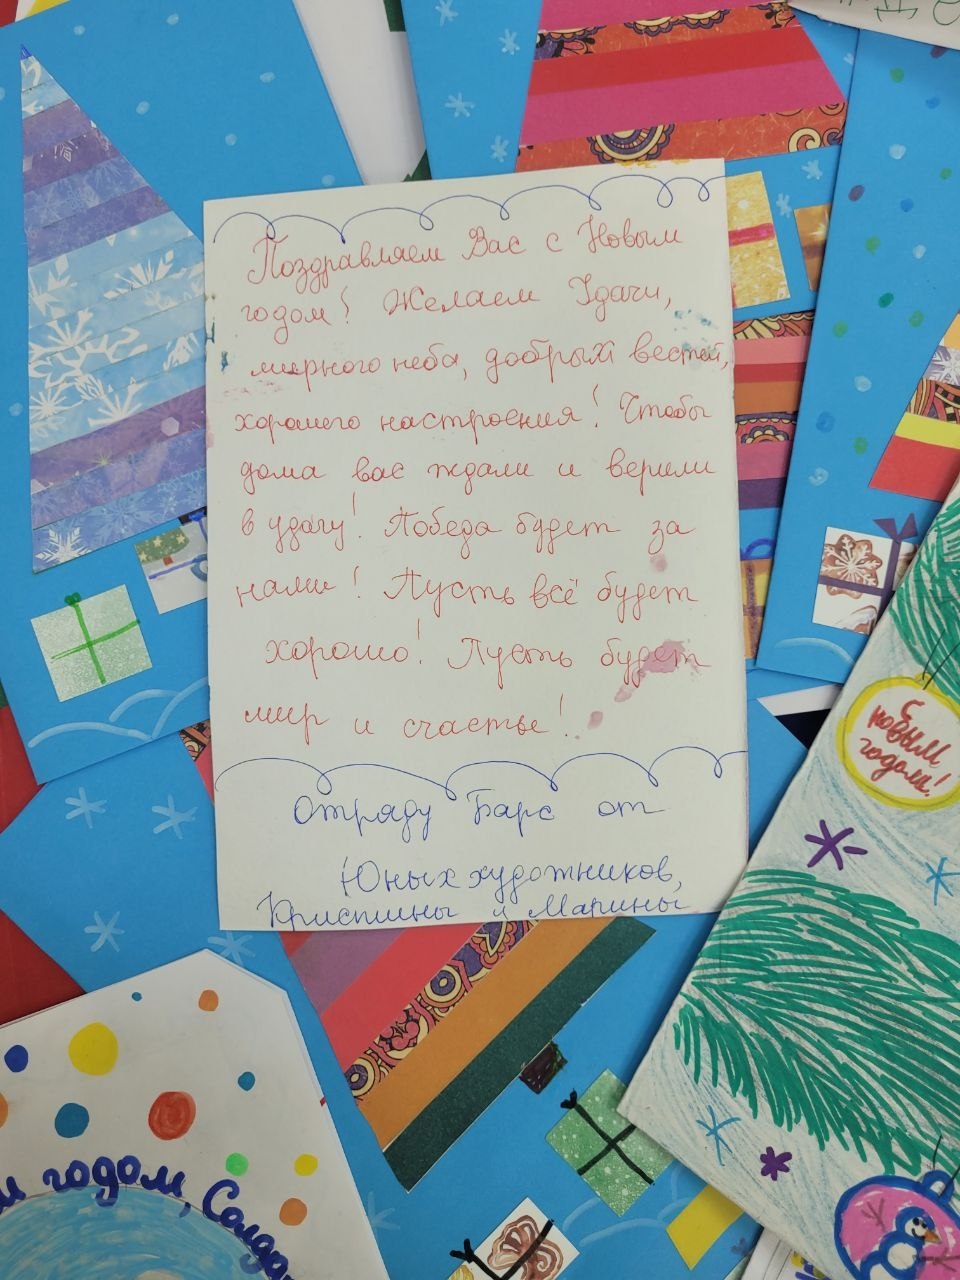 Поздравляем Вас с Новым
годом! Желаем Удачи,
мирного неба, добрых вестей,
хорошего настроения! Чтобы
дома вас ждали и верили
в удачу! Победа будет за
нами! Пусть всё будет
хорошо! Пусть будет
мир и счастье!
Отряду Барс от
Юных художников,
Кристины и Марины
С
новым
годом!
годом,